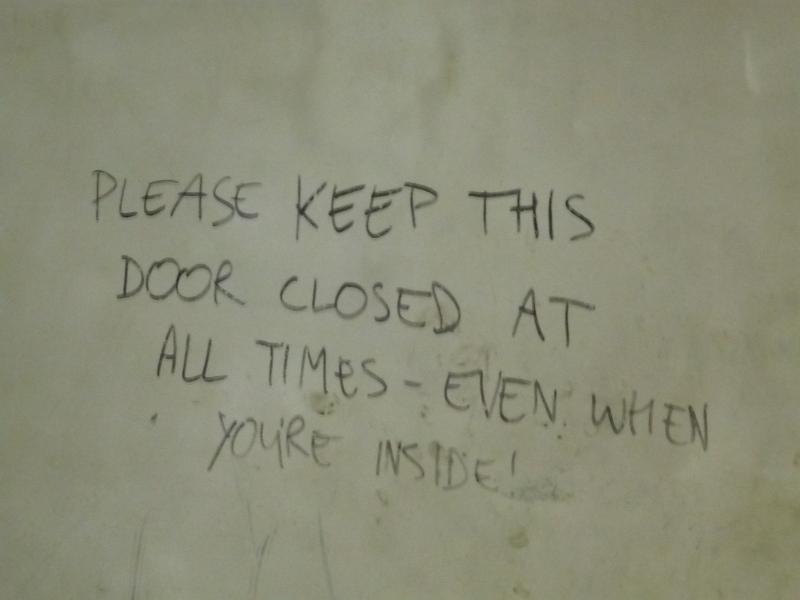 PLEASE KEEP THIS
DOOR CLOSED AT
ALL TIMES - EVEN WHEN
YOU'RE INSIDE!